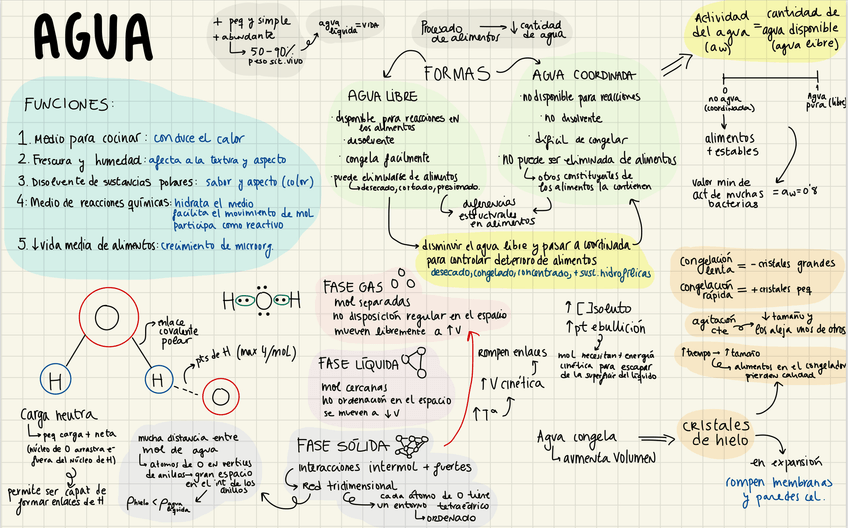 AGUA
+ peq y simple
+ abundante
50-90%
peso sist. vivo
agua
líquida = VIDA
Procesado
de alimentos → ↓ cantidad
de agua
Actividad
del agua
(aw) = cantidad de
agua disponible
(agua libre)
0
no agua
(coordinada)
1
Agua
pura (libre)
alimentos
+ estables
valor min de
act de muchas
bacterias = aw=0'8
FUNCIONES:
1. Medio para cocinar: conduce el calor
2. Frescura y humedad: afecta a la textura y aspecto
3. Disolvente de sustancias polares: sabor y aspecto (color)
4. Medio de reacciones químicas: hidrata el medio
facilita el movimiento de mol
participa como reactivo
5. ↓ vida media de alimentos: crecimiento de microorg.
FORMAS
AGUA LIBRE
· disponible para reacciones en
los alimentos
· disolvente
· congela facilmente
· puede eliminarse de alimentos
desecado, cortado, presionado.
AGUA COORDINADA
· no disponible para reacciones
· no disolvente
· difícil de congelar
· no puede ser eliminada de alimentos
otros constituyentes de
los alimentos la contienen
diferencias
estructurales
en alimentos
disminuir el agua libre y pasar a coordinada
para controlar deterioro de alimentos
desecado, congelado, concentrado, + sust. hidrofílicas
O
H
H
O
enlace
covalente
polar
pts de H (max 4/mol)
H O H
Carga neutra
peq carga + neta
(núcleo de O arrastra e-
fuera del núcleo de H)
permite ser capat de
formar enlaces de H
mucha distancia entre
mol de agua
átomos de O en vertices
de anillos → gran espacio
en el int de los
anillos
ρhielo < ρagua
líquida
FASE GAS
mol separadas
no disposición regular en el espacio
mueven libremente a ↑V
FASE LÍQUIDA
mol cercanas
no ordenación en el espacio
se mueven a ↓V
FASE SÓLIDA
interacciones intermol + fuertes
Red tridimensional
cada átomo de O tiene
un entorno tetraédrico
ordenado
rompen enlaces
↑V cinética
↑Tª
↑[ ]soluto
↑pt ebullición
mol necesitan + energía
cinética para escapar
de la superfair del líquido
Agua congela
aumenta volumen
cristales
de hielo
congelación
lenta = - cristales grandes
congelación
rápida = + cristales peq
agitación
cte → ↓ tamaño y
los aleja unos de otros
↑tiempo → ↑ tamaño
alimentos en el congelador
pierden calidad
en expansión
rompen membranas
y paredes cel.